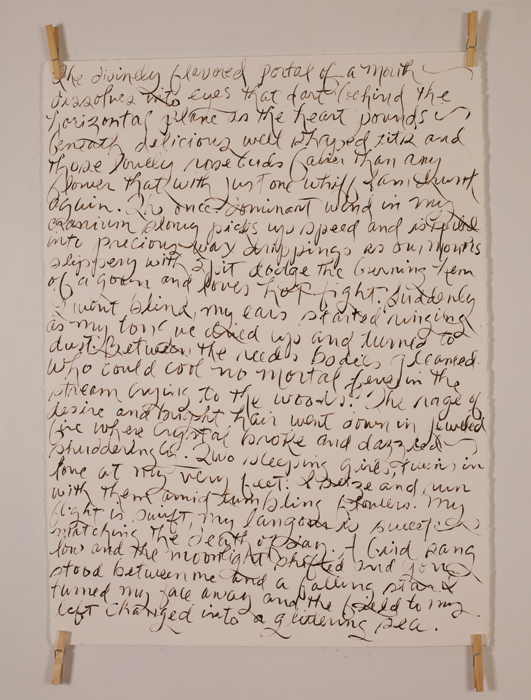 The divinely flavored portal of a mouth
dissolves into eyes that dart behind the
horizontal plane as the heart pounds
beneath delicious well shaped tits and
those lovely rosebuds fairer than any
flower that with just one whiff I am drunk
again. The once dominant wind in my
cranium slowly picks up speed and is
into precious wax drippings as our mouths
slippery with spit dodge the burning hem
of a gown and loves hot fight. Suddenly
I went blind, my ears started ringing
as my tongue dried up and turned to
dust. Between the reeds bodies gleamed.
Who could cool no mortal fever in the
stream crying to the woods. The rage of
desire and bright hair went down in jeweled
fire where crystal broke and dazzled
shuddering. Two sleeping girls twins in
love at my very feet. I seize and run
with them amid tumbling flowers. My
flight is swift, my languor is sweet
matching the death of day. A bird sang
low and the moonlight shifted and you
stood between me and a falling star. I
turned my face away and the field to my
left changed into a glittering sea.